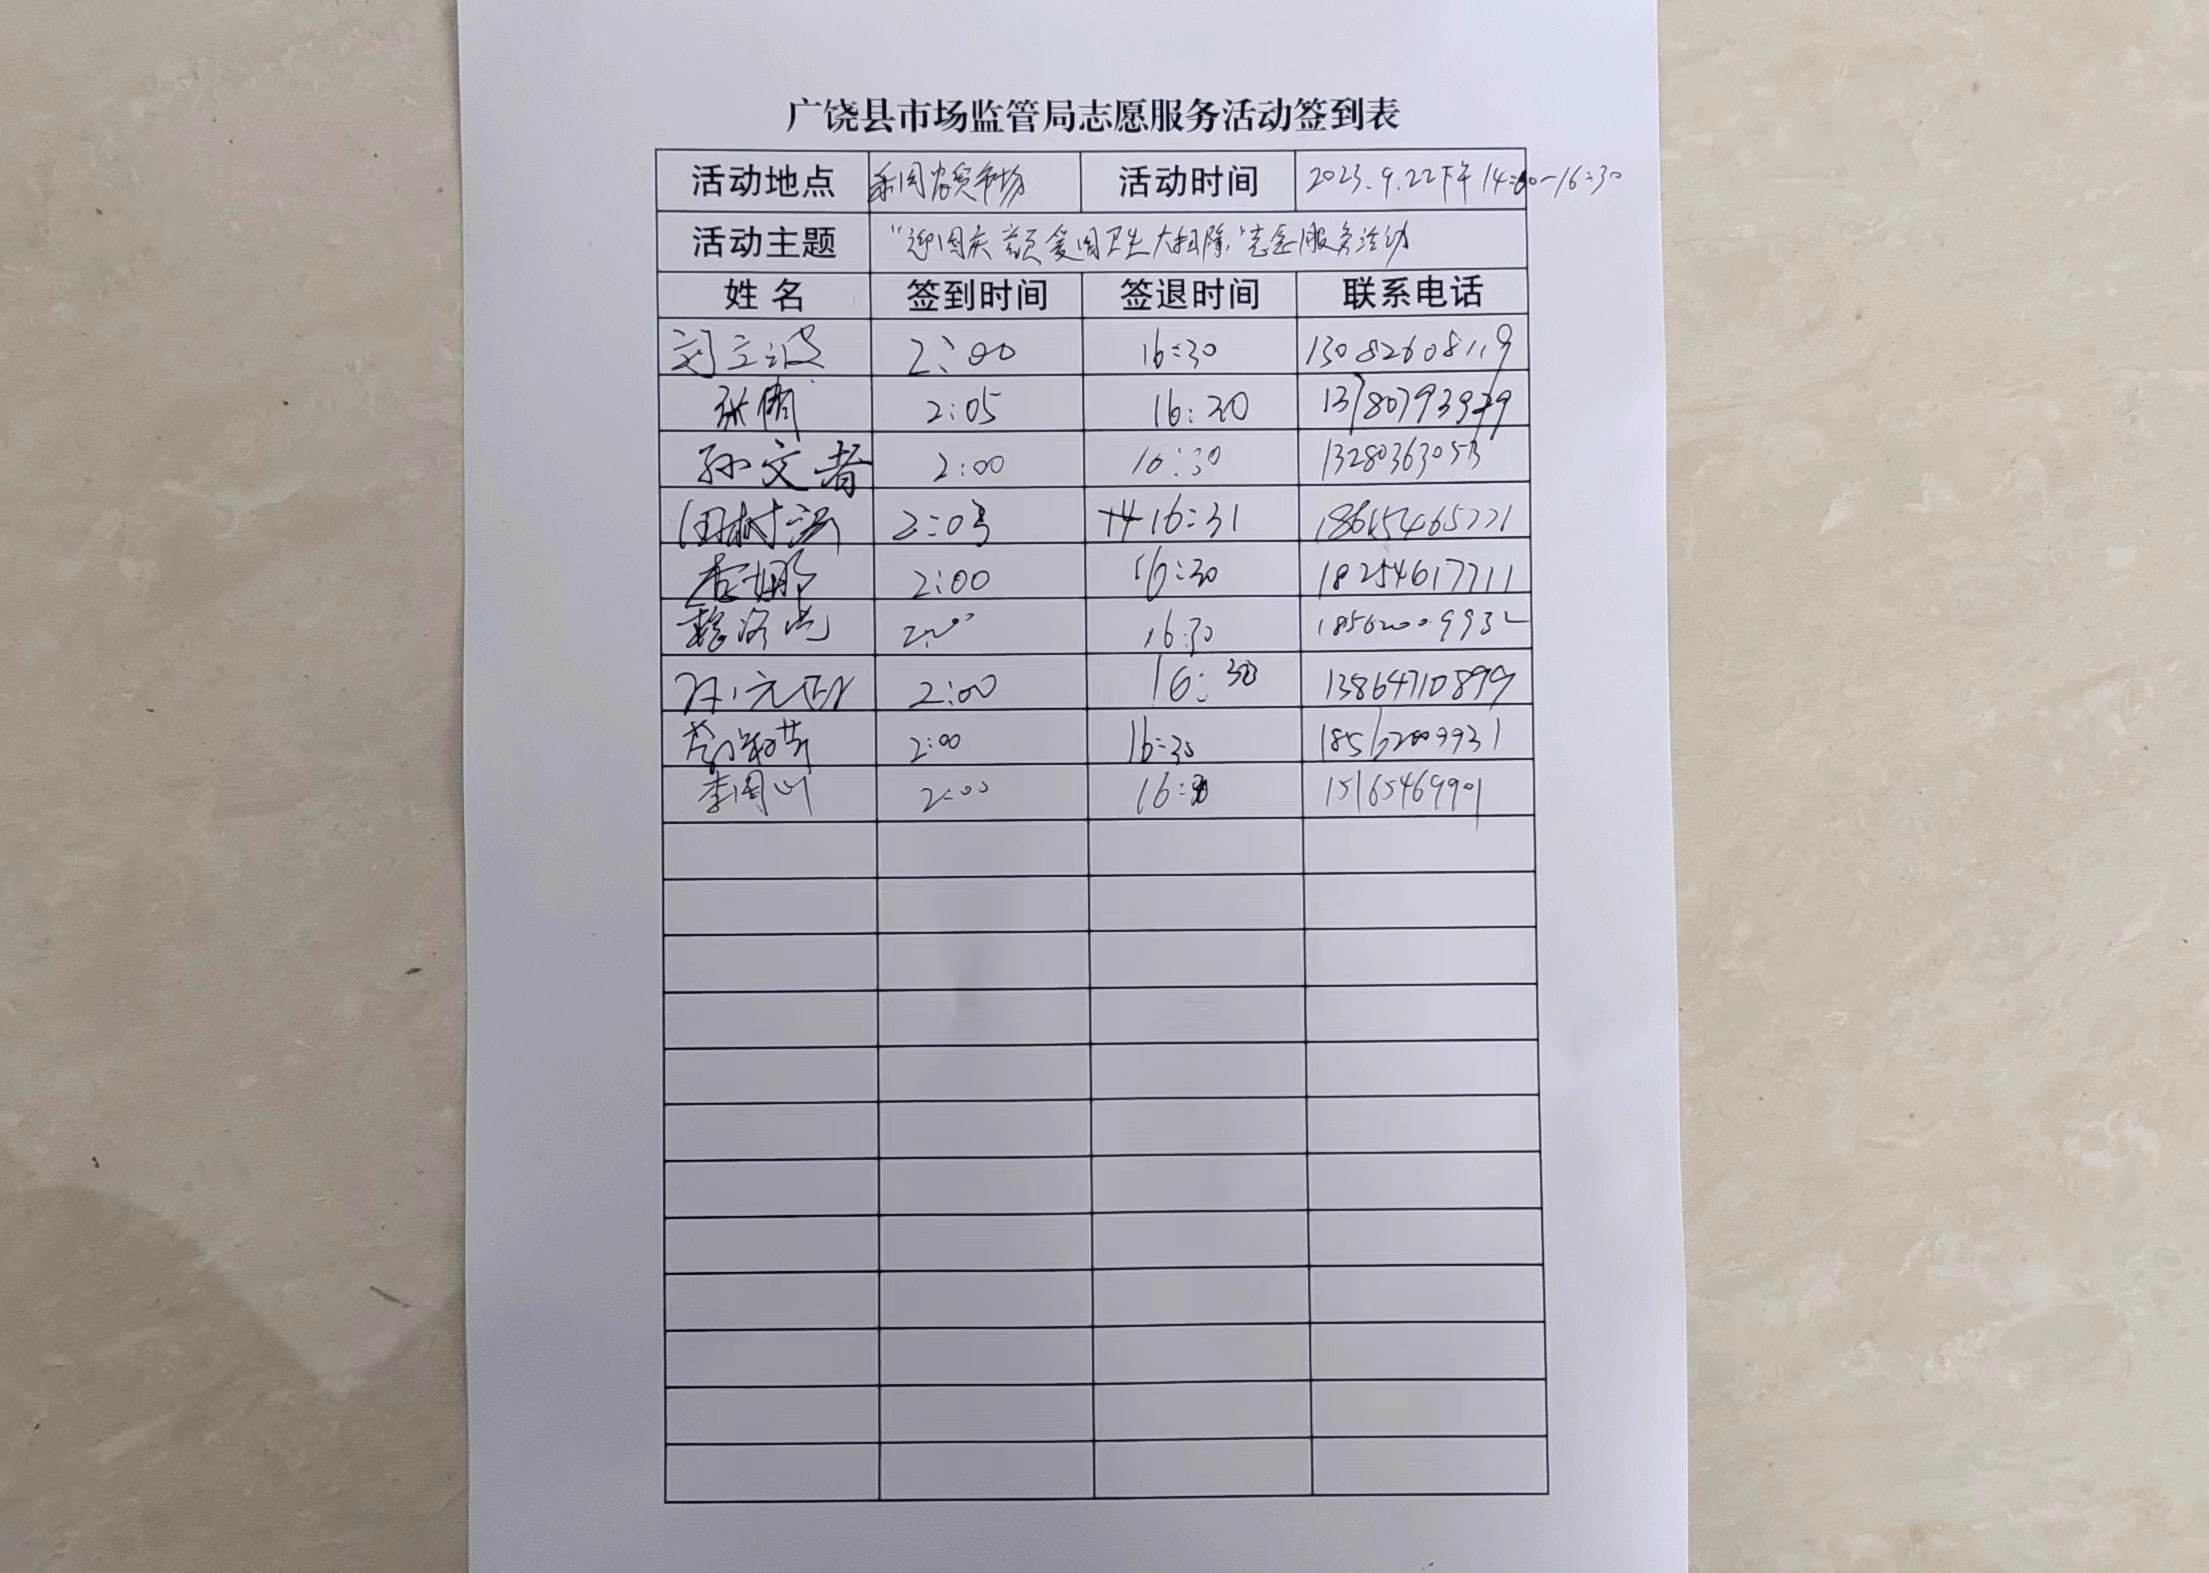 广饶县市场监管局志愿服务活动签到表
活动地点 乐园农贸市场 活动时间 2023.9.22下午14:00-16:30
活动主题 "迎国庆 爱国卫生大扫除"志愿服务活动
姓名 签到时间 签退时间 联系电话
刘立波 2:00 16:30 13082608119
张倩 2:05 16:30
孙文者 2:00 16:30 13280363053
田树 2:03 16:31 18615465771
李娜 2:00 16:30 18254617711
2:00 16:30 18562009932
孙元 2:00 16:30 13864710899
2:00 16:30 18562009931
李国山 2:00 16:30 15165469901